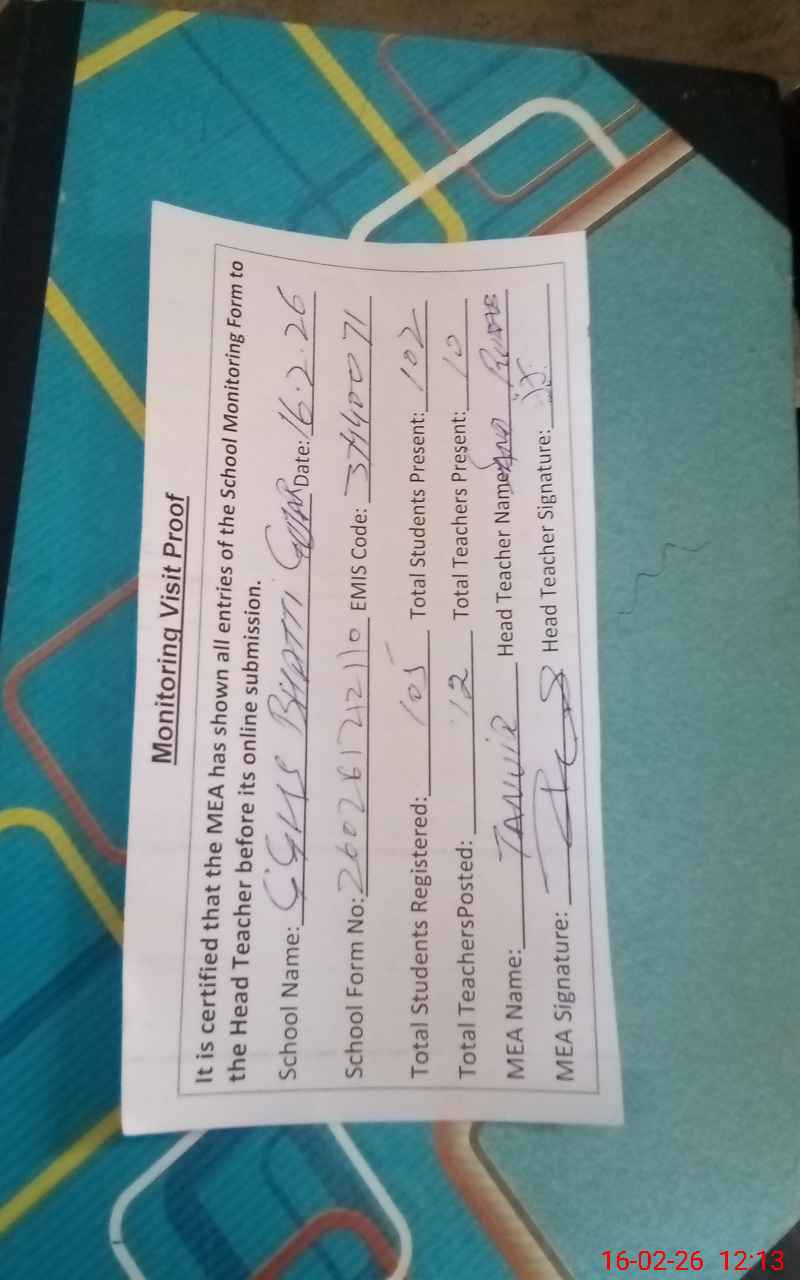 Monitoring Visit Proof
It is certified that the MEA has shown all entries of the School Monitoring Form to
the Head Teacher before its online submission.
School Name: GGHS BHATTI Date: 16.2.26
School Form No: 260261212110 EMIS Code: 37440071
Total Students Registered: 105 Total Students Present: 102
Total TeachersPosted: 12 Total Teachers Present: 10
MEA Name: TANVIR Head Teacher Name:
MEA Signature: Head Teacher Signature:
16-02-26 12:13